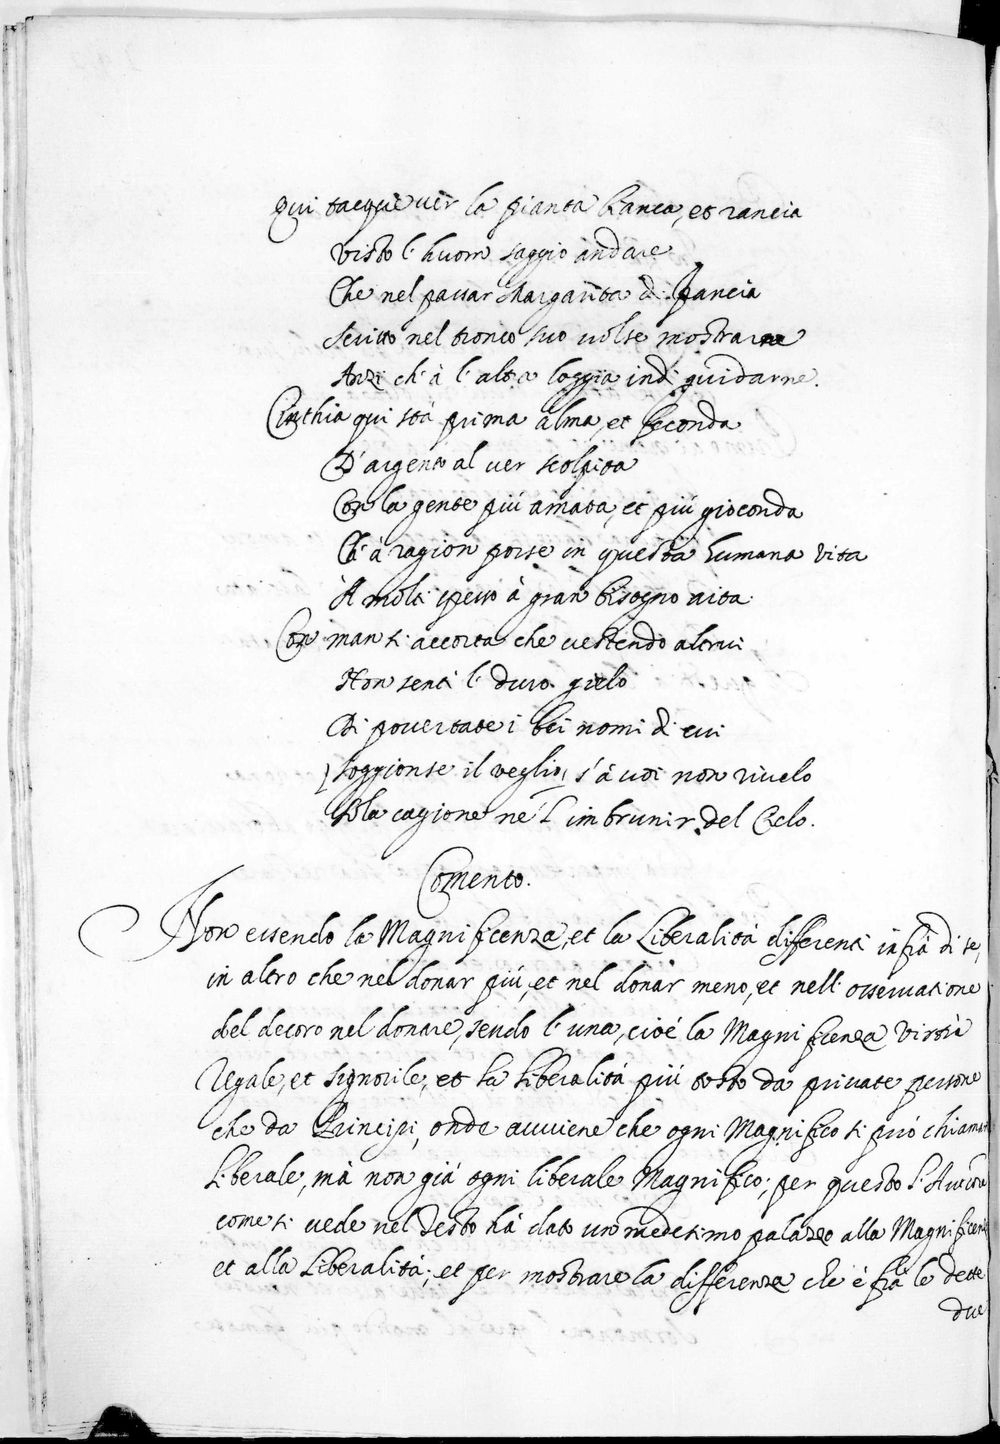 Qui tacque ver la pianta bianca, et rancia
Visto l'huom saggio andare
Che nel passar Margarita di Francia
Scritto nel tronco suo volse mostrarne
Anzi ch'à l'alta loggia indi guidarne.
Cinthia qui stà prima alma, et seconda
D'argento al ver scolpita
Con la gente più amata, et più gioconda
Ch'à ragion porse in questa humana vita
A' molti spesso à gran bisogno aita
Con man sì accorta che vestendo altrui
Non sentì 'l duro gielo
Di povertate i bei nomi di cui
(soggionse il veglio) s'à voi non rivelo
E' la cagione né l'imbrunir del Cielo.
Comento.
Non essendo la Magnificenza, et la Liberalità differenti infrà di se,
in altro che nel donar più, et nel donar meno, et nell'osservatione
del decoro nel donare, sendo l'una, cioé la Magnificenza virtù
Regale, et signorile, et la liberalità più tosto da private persone
che da Principi, onde avviene che ogni Magnifico si può chiamar
liberale, mà non già ogni liberale Magnifico; per questo l'Autore
come si vede nel Testo hà dato un medesimo palazzo alla Magnificenza
et alla Liberalità; et per mostrare la differenza che è frà le dette
due